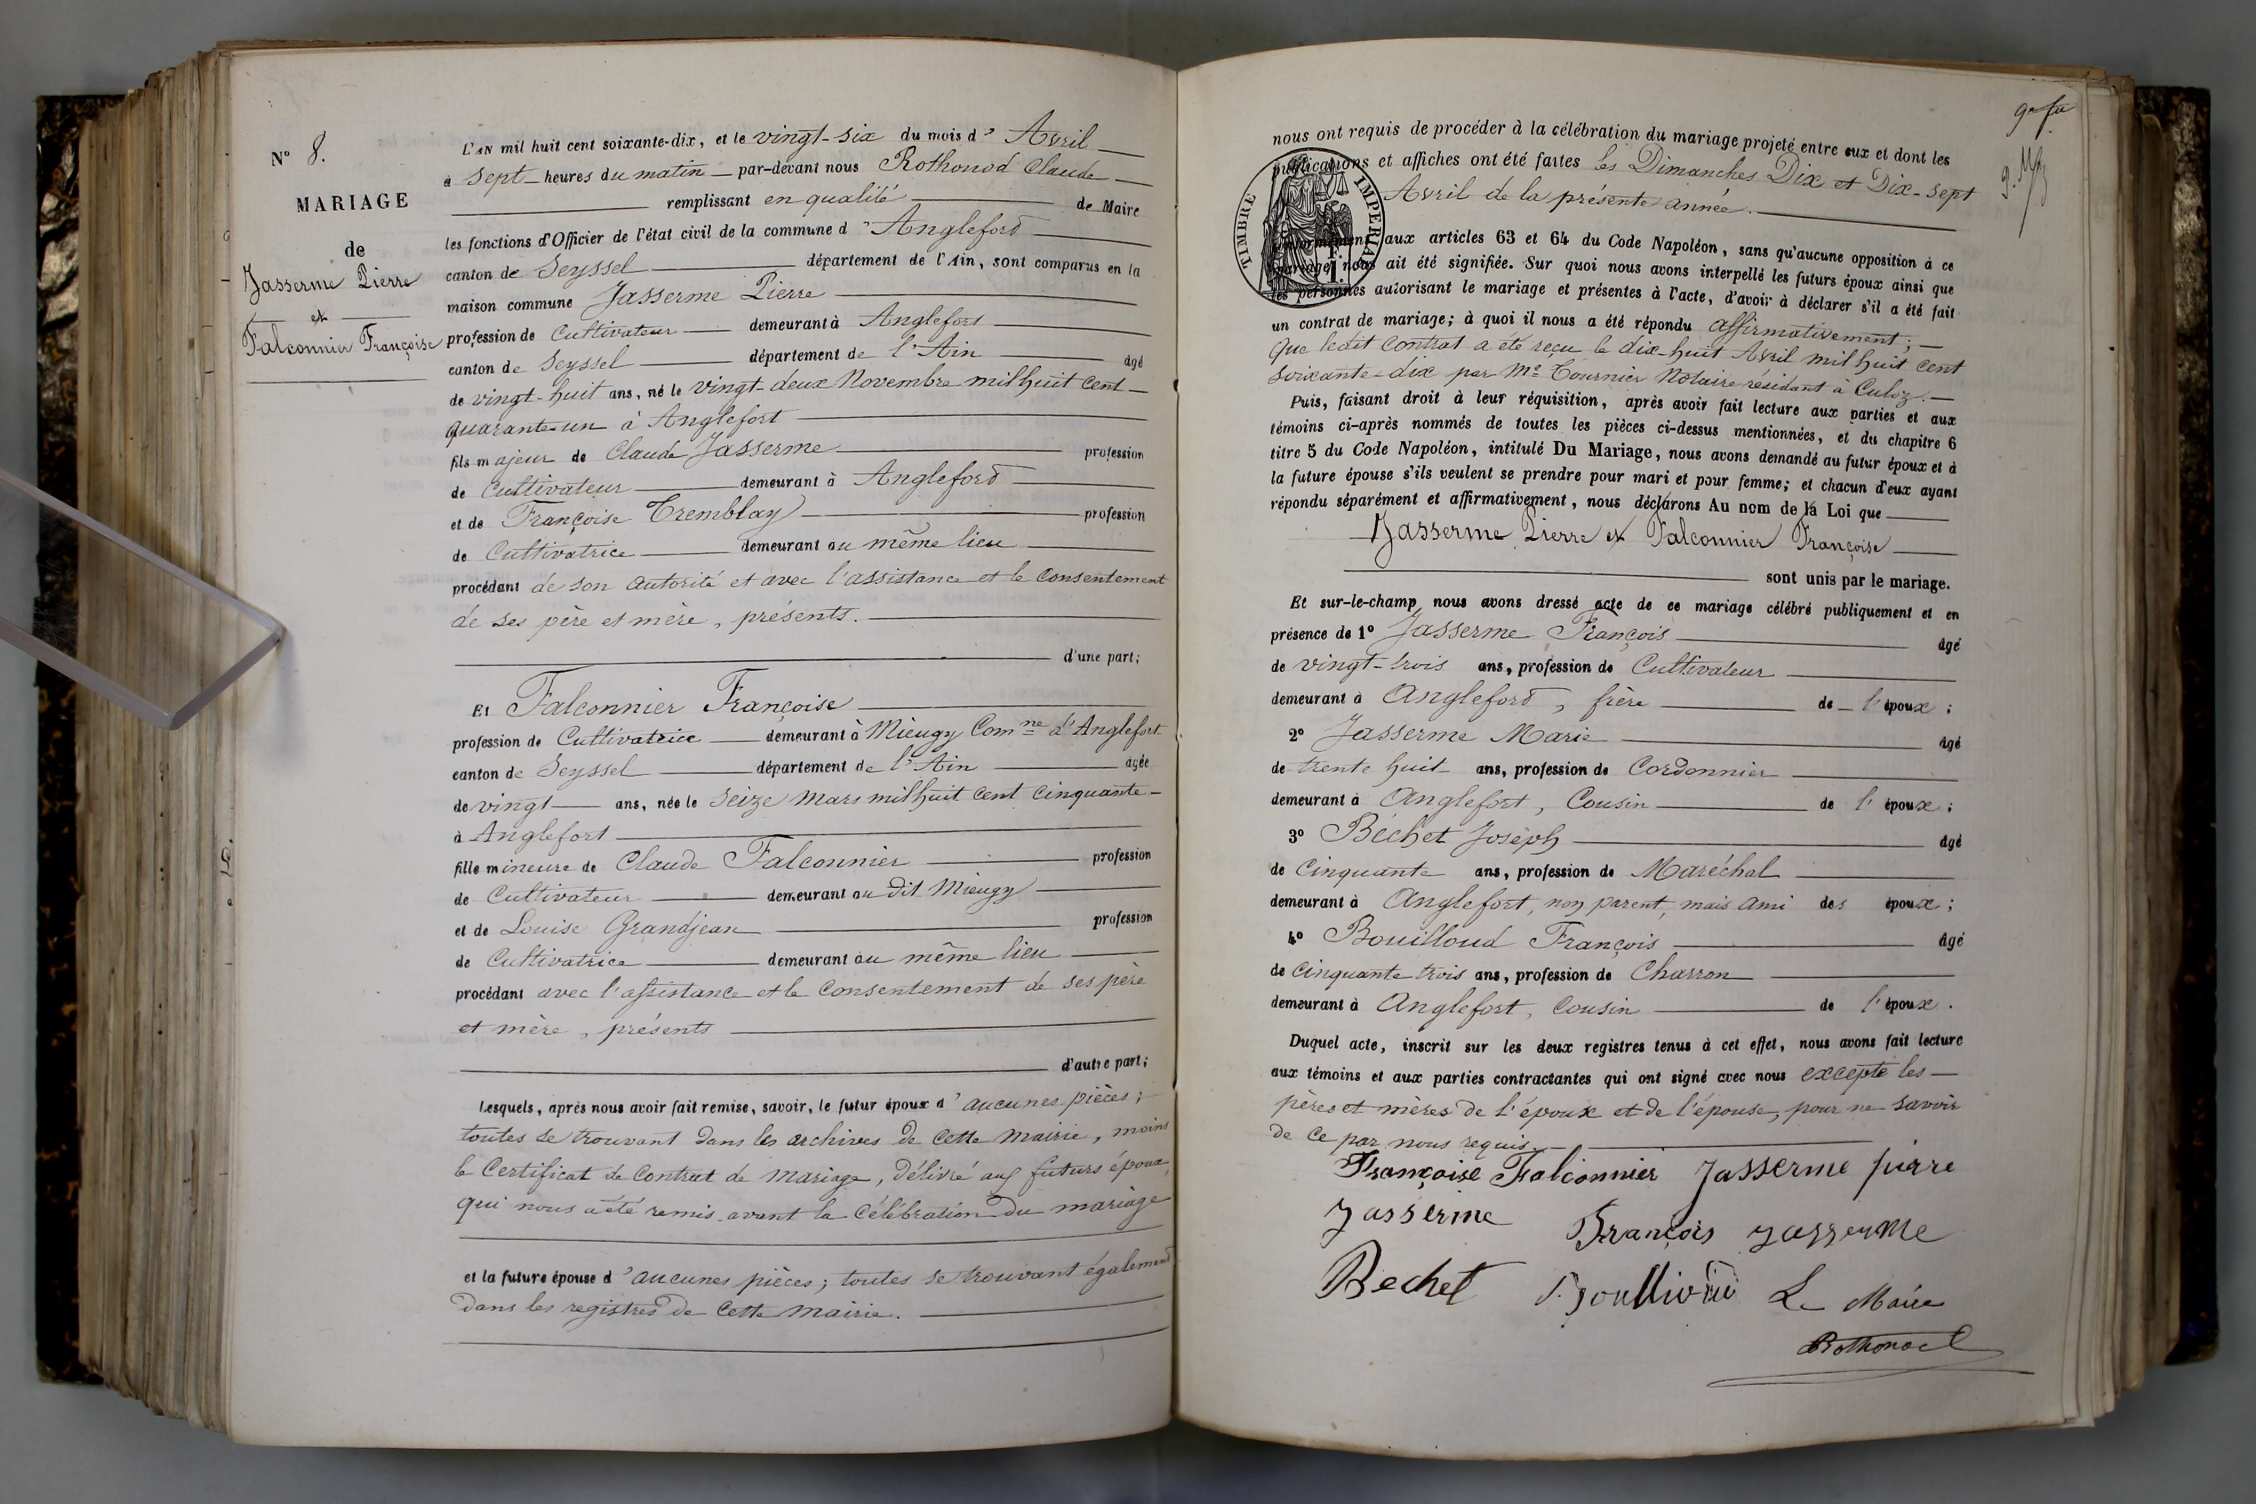 N° 8.
MARIAGE
de
Jasserme Pierre
et
Falconnier Françoise
L'AN mil huit cent soixante-dix, et le vingt-six du mois d' Avril
à sept heures du matin par-devant nous Rothonod Claude
remplissant en qualité de Maire
les fonctions d'Officier de l'état civil de la commune d'Anglefort
canton de Seyssel département de l'Ain, sont comparus en la
maison commune Jasserme Pierre
profession de Cultivateur demeurant à Anglefort
canton de Seyssel département de l'Ain âgé
de vingt-huit ans, né le vingt-deux Novembre mil huit cent
quarante-un à Anglefort
fils majeur de Claude Jasserme profession
de Cultivateur demeurant à Anglefort
et de Françoise Tremblay profession
de Cultivatrice demeurant au même lieu
procédant de son autorité et avec l'assistance et le consentement
de ses père et mère, présents.
d'une part;
Et Falconnier Françoise
profession de Cultivatrice demeurant à Mieugy Comne d'Anglefort
canton de Seyssel département de l'Ain âgée
de vingt ans, née le seize Mars mil huit cent cinquante
à Anglefort
fille mineure de Claude Falconnier profession
de Cultivateur demeurant au dit Mieugy
et de Louise Grandjean profession
de Cultivatrice demeurant au même lieu
procédant avec l'assistance et le consentement de ses père
et mère, présents
d'autre part;
Lesquels, après nous avoir fait remise, savoir, le futur époux d'aucunes pièces;
toutes se trouvant dans les archives de cette mairie, moins
le Certificat de contrat de mariage, délivré aux futurs époux,
qui nous a été remis avant la célébration du mariage
et la future épouse d'aucunes pièces; toutes se trouvant également
dans les registres de cette mairie.
nous ont requis de procéder à la célébration du mariage projeté entre eux et dont les
publications et affiches ont été faites les Dimanches Dix et Dix-sept
Avril de la présente année.
TIMBRE IMPERIAL
conformément aux articles 63 et 64 du Code Napoléon, sans qu'aucune opposition à ce
mariage nous ait été signifiée. Sur quoi nous avons interpellé les futurs époux ainsi que
les personnes autorisant le mariage et présentes à l'acte, d'avoir à déclarer s'il a été fait
un contrat de mariage; à quoi il nous a été répondu affirmativement;
Que ledit Contrat a été reçu le dix-huit Avril mil huit cent
soixante-dix par Me Tournier Notaire résidant à Culoz.
Puis, faisant droit à leur réquisition, après avoir fait lecture aux parties et aux
témoins ci-après nommés de toutes les pièces ci-dessus mentionnées, et du chapitre 6
titre 5 du Code Napoléon, intitulé Du Mariage, nous avons demandé au futur époux et à
la future épouse s'ils veulent se prendre pour mari et pour femme; et chacun d'eux ayant
répondu séparément et affirmativement, nous déclarons Au nom de la Loi que
Jasserme Pierre et Falconnier Françoise
sont unis par le mariage.
Et sur-le-champ nous avons dressé acte de ce mariage célébré publiquement et en
présence de 1° Jasserme François âgé
de vingt-trois ans, profession de Cultivateur
demeurant à Anglefort, frère de l'époux;
2° Jasserme Marie âgé
de trente huit ans, profession de Cordonnier
demeurant à Anglefort, Cousin de l'époux;
3° Béchet Joseph âgé
de cinquante ans, profession de Maréchal
demeurant à Anglefort, non parent, mais ami des époux;
4° Bouilloud François âgé
de cinquante trois ans, profession de Charron
demeurant à Anglefort, Cousin de l'époux.
Duquel acte, inscrit sur les deux registres tenus à cet effet, nous avons fait lecture
aux témoins et aux parties contractantes qui ont signé avec nous excepté les
pères et mères de l'époux et de l'épouse, pour ne savoir
de ce par nous requis.
Françoise Falconnier Jasserme pierre
Jasserme François Jasserme
Bechet Le Maire
Rothonod